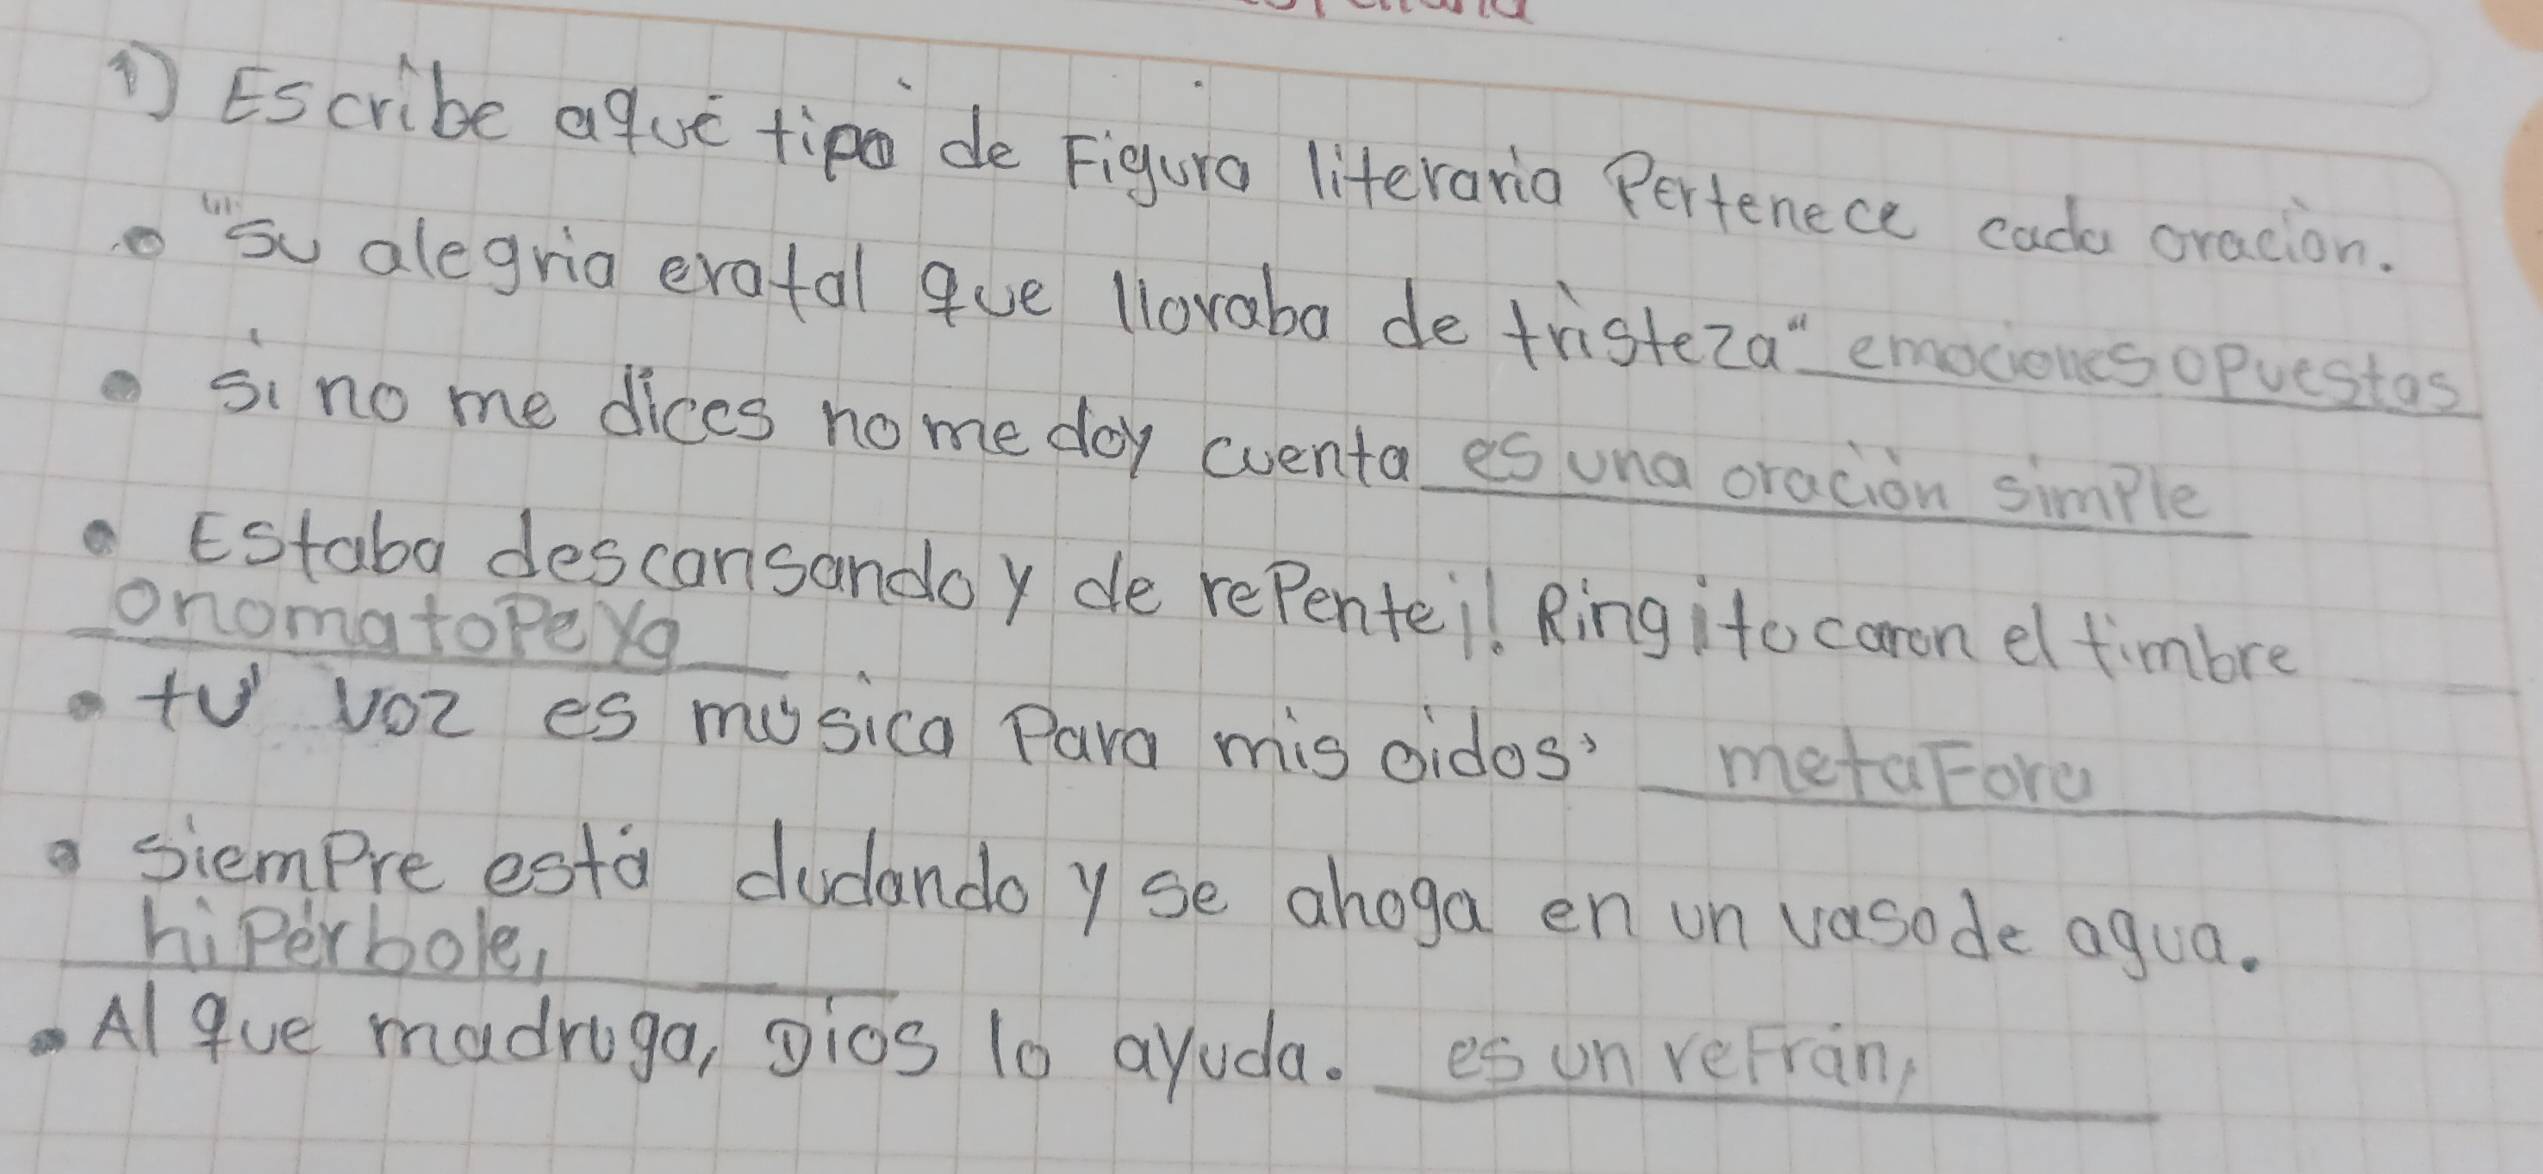 1) Escribe aqué tipo de Figura literaria Pertenece cada oración.
• "Su alegria eratal que lloraba de tristeza" emociones opuestas
• si no me dices nome doy cuenta es una oración simple
• Estaba descansando y de repente ¡! Ring i tocaron el timbre
onomatopeya
• tú voz es música Para mis oidos' metaFora
• Siempre está dudando y se ahoga en un vasode agua.
hipérbole,
• Al que madruga, Dios lo ayuda. es un reFrán,